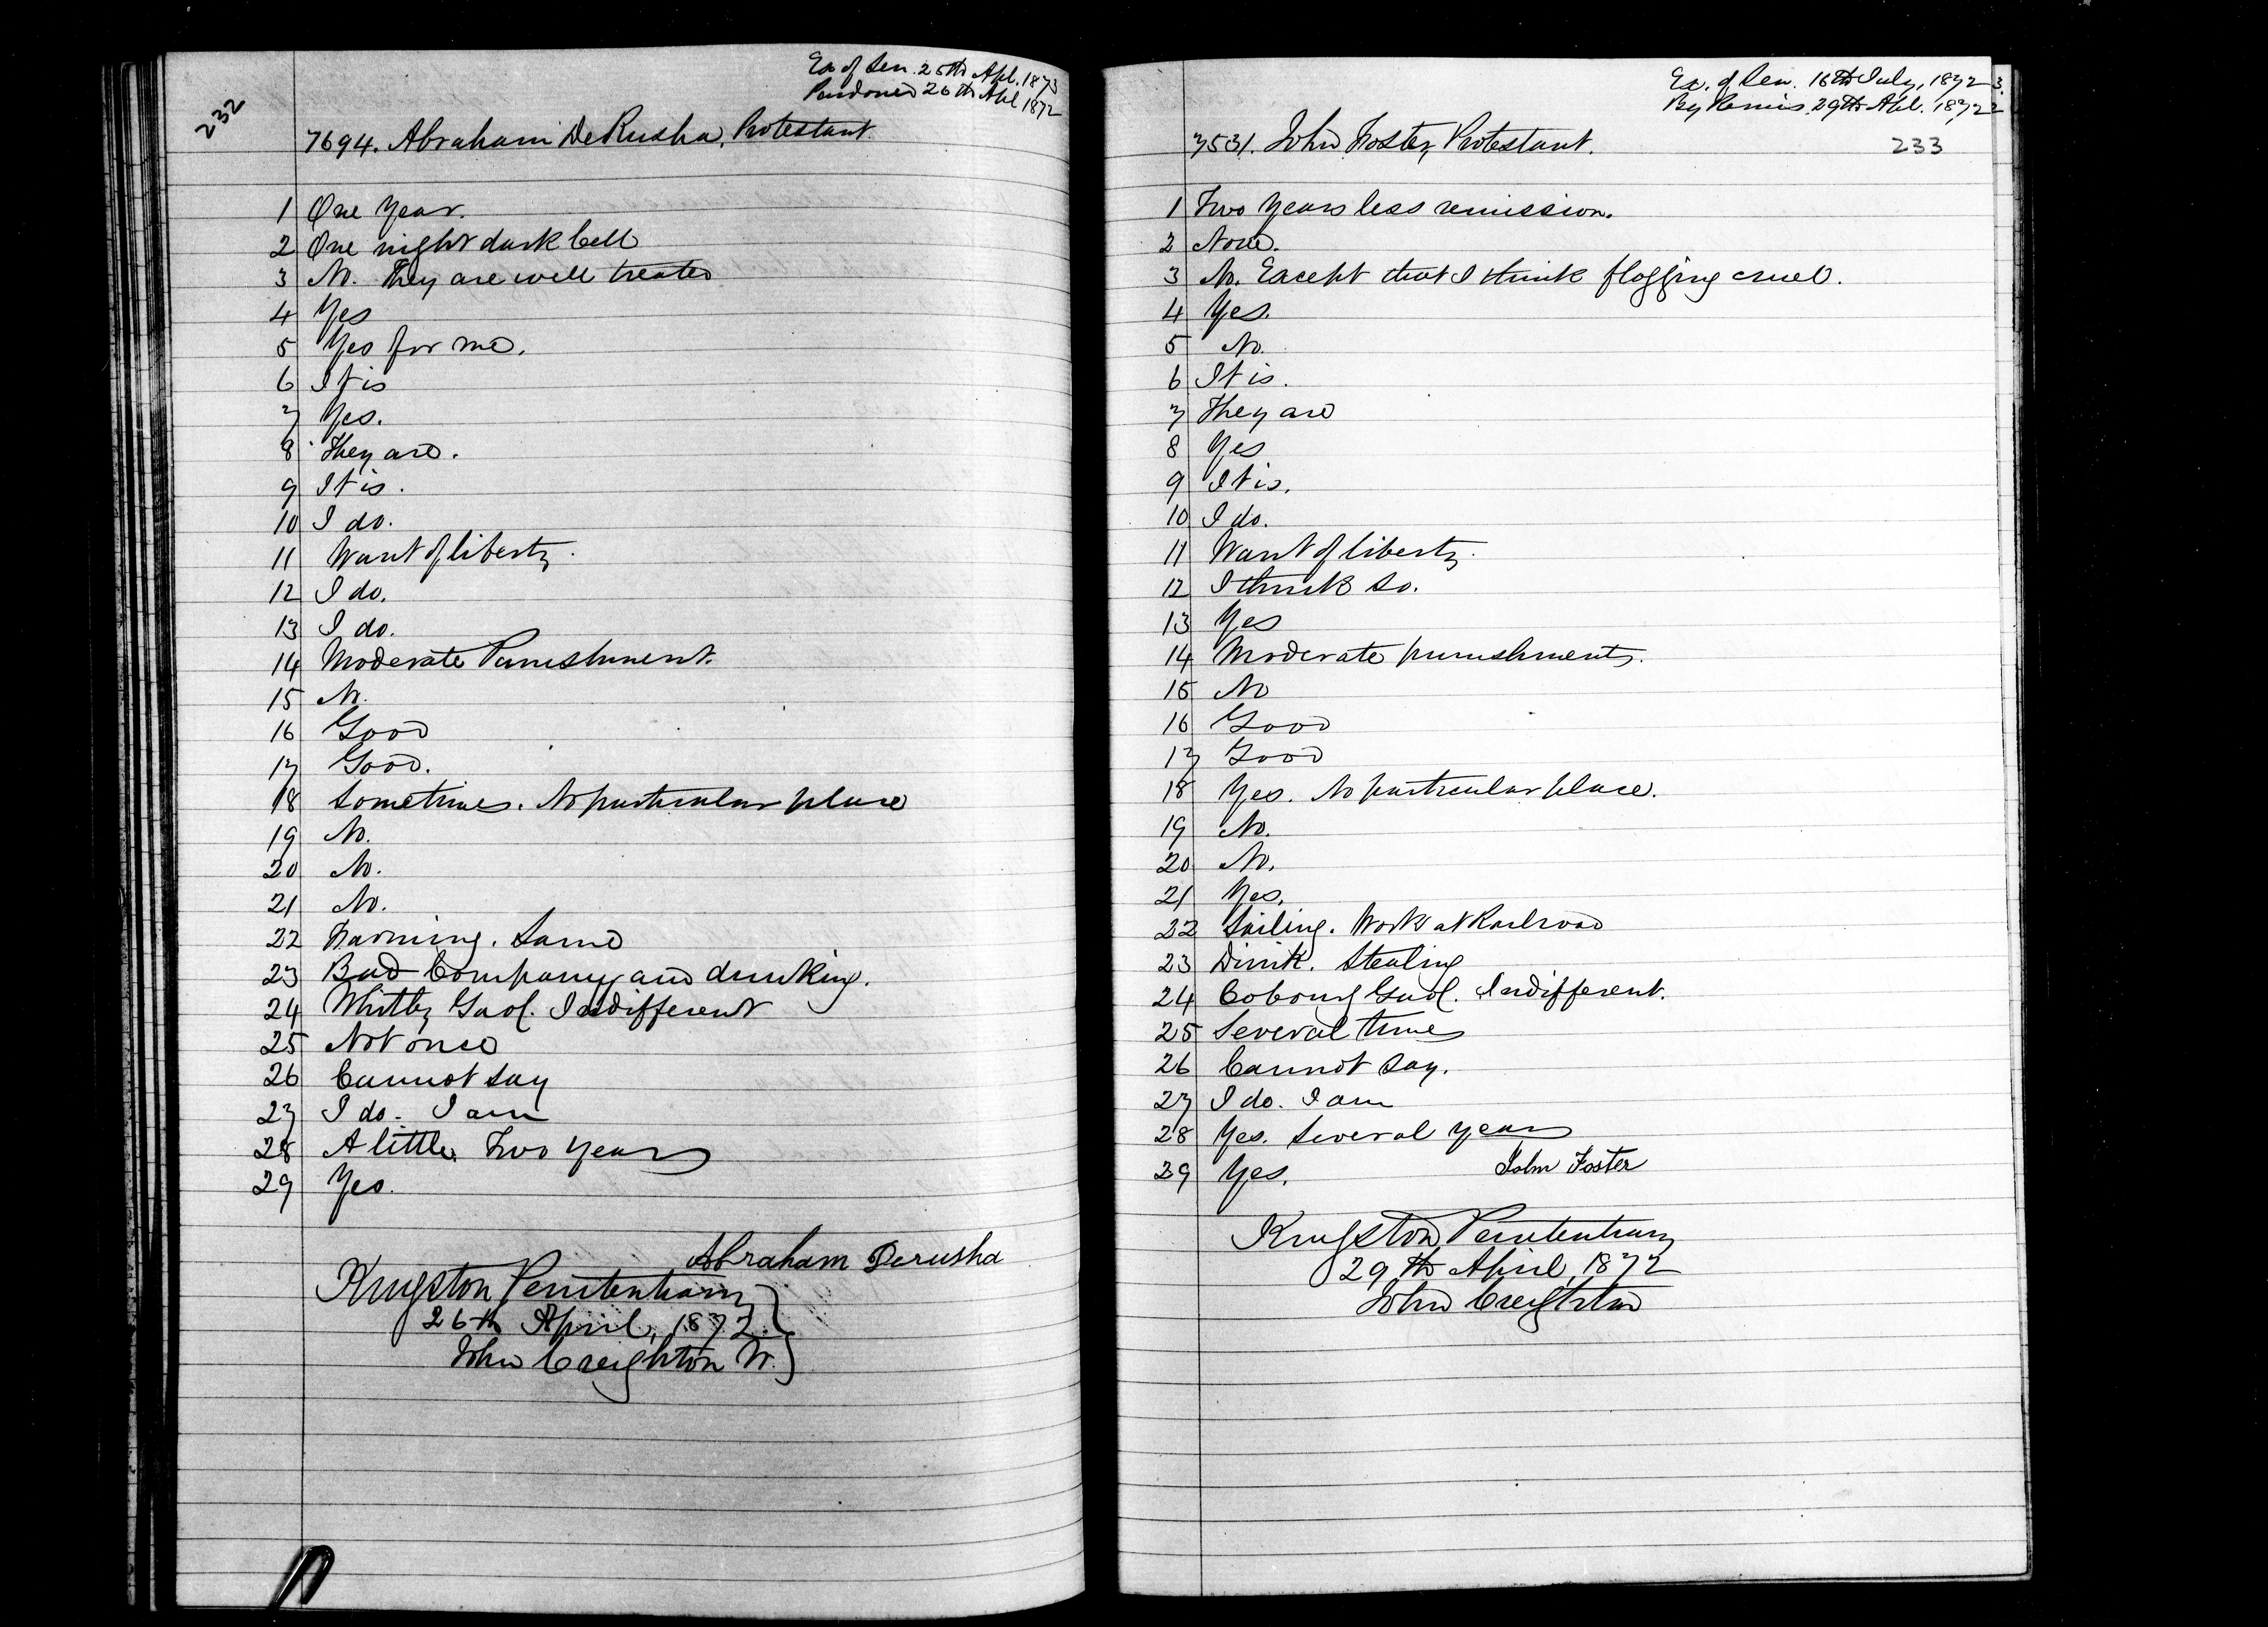 232
Ex of Sen. 25th Apl. 1873
Pardoned 26th Apl 1872
7694. Abraham DeRusha, Protestant.
1 One Year.
2 One night dark Cell
3 No. They are well treated
4 Yes
5 Yes for me.
6 It is
7 Yes.
8 They are.
9 It is.
10 I do.
11 Want of liberty.
12 I do.
13 I do.
14 Moderate Punishment.
15 No.
16 Good
17 Good.
18 Sometimes. No particular place
19 No.
20 No.
21 No.
22 Farming. Same
23 Bad Company and drinking.
24 Whitby Gaol. Indifferent
25 Not once
26 Cannot say
27 I do. I am
28 A little. Two years
29 Yes.
Abraham Derusha
Kingston Penitentiary
26th April, 1872.
John Creighton W.
Ex. of Sen. 16th July, 1872 3.
By Remis. 29th Apl. 1872
7531. John Foster, Protestant.
233
1 Two Years less remission.
2 None.
3 No. Except that I think flogging cruel.
4 Yes.
5 No.
6 It is.
7 They are
8 Yes
9 It is.
10 I do.
11 Want of liberty.
12 I think so.
13 Yes
14 Moderate punishments.
15 No
16 Good
17 Good
18 Yes. No particular place.
19 No.
20 No.
21 Yes.
22 Sailing. Work at Railroad
23 Drink. Stealing
24 Cobourg Gaol. Indifferent.
25 Several times
26 Cannot say.
27 I do. I am
28 Yes. Several years
29 Yes.
John Foster
Kingston Penitentiary
29th April, 1872
John Creighton